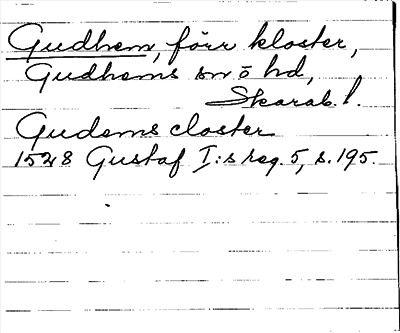 Gudhem, förr kloster,
Gudhems sn o hd,
Skarab. l.
Gudems closter
1528 Gustaf I:s reg. 5, s. 195.